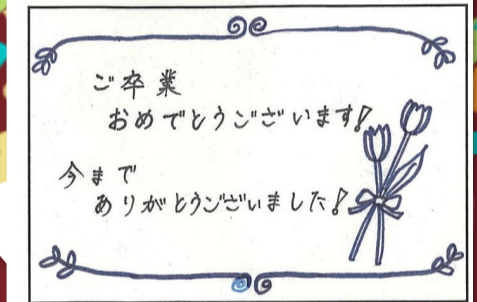 ご卒業
おめでとうございます!
今まで
ありがとうございました!